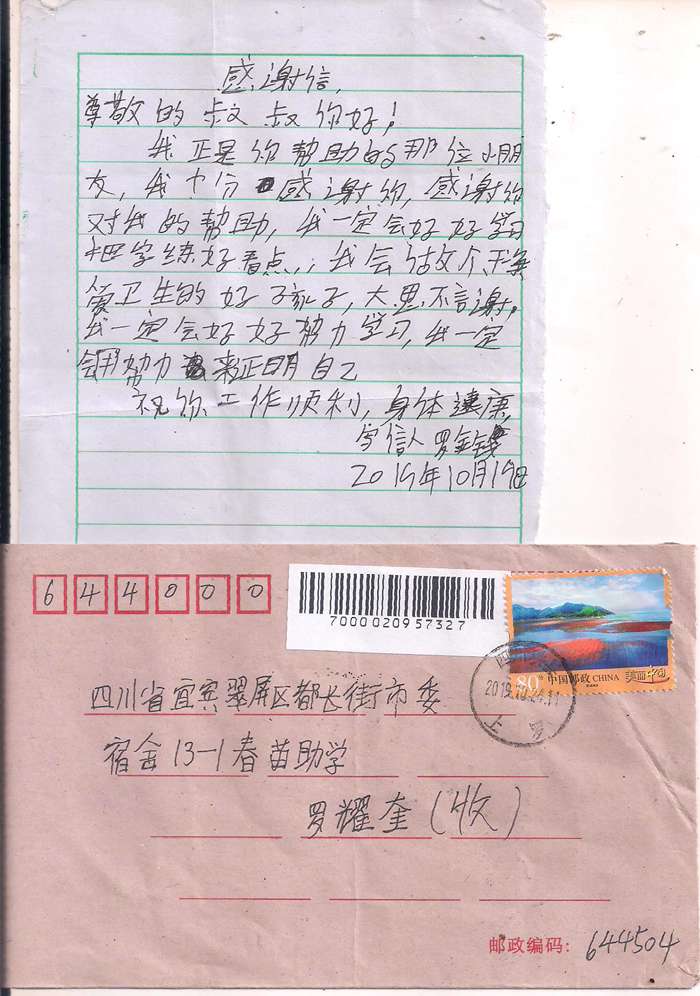 感谢信,
尊敬的叔叔你好!
我正是你帮助的那位小朋
友,我十分感谢你,感谢你
对我的帮助,我一定会好好学习
把字练好看点,我会做个干净
卫生的好孩子,大恩不言谢。
我一定会好好努力学习,我一定
会用努力来证明自己
祝你工作顺利,身体健康,
写信人 罗金钱
2019年10月19日
644000
7000020957327
80分 中国邮政 CHINA 美丽中国
四川
2019.10.24.11
四川省宜宾翠屏区都长街市委
宿舍13-1春苗助学
罗耀奎(收)
邮政编码: 644504